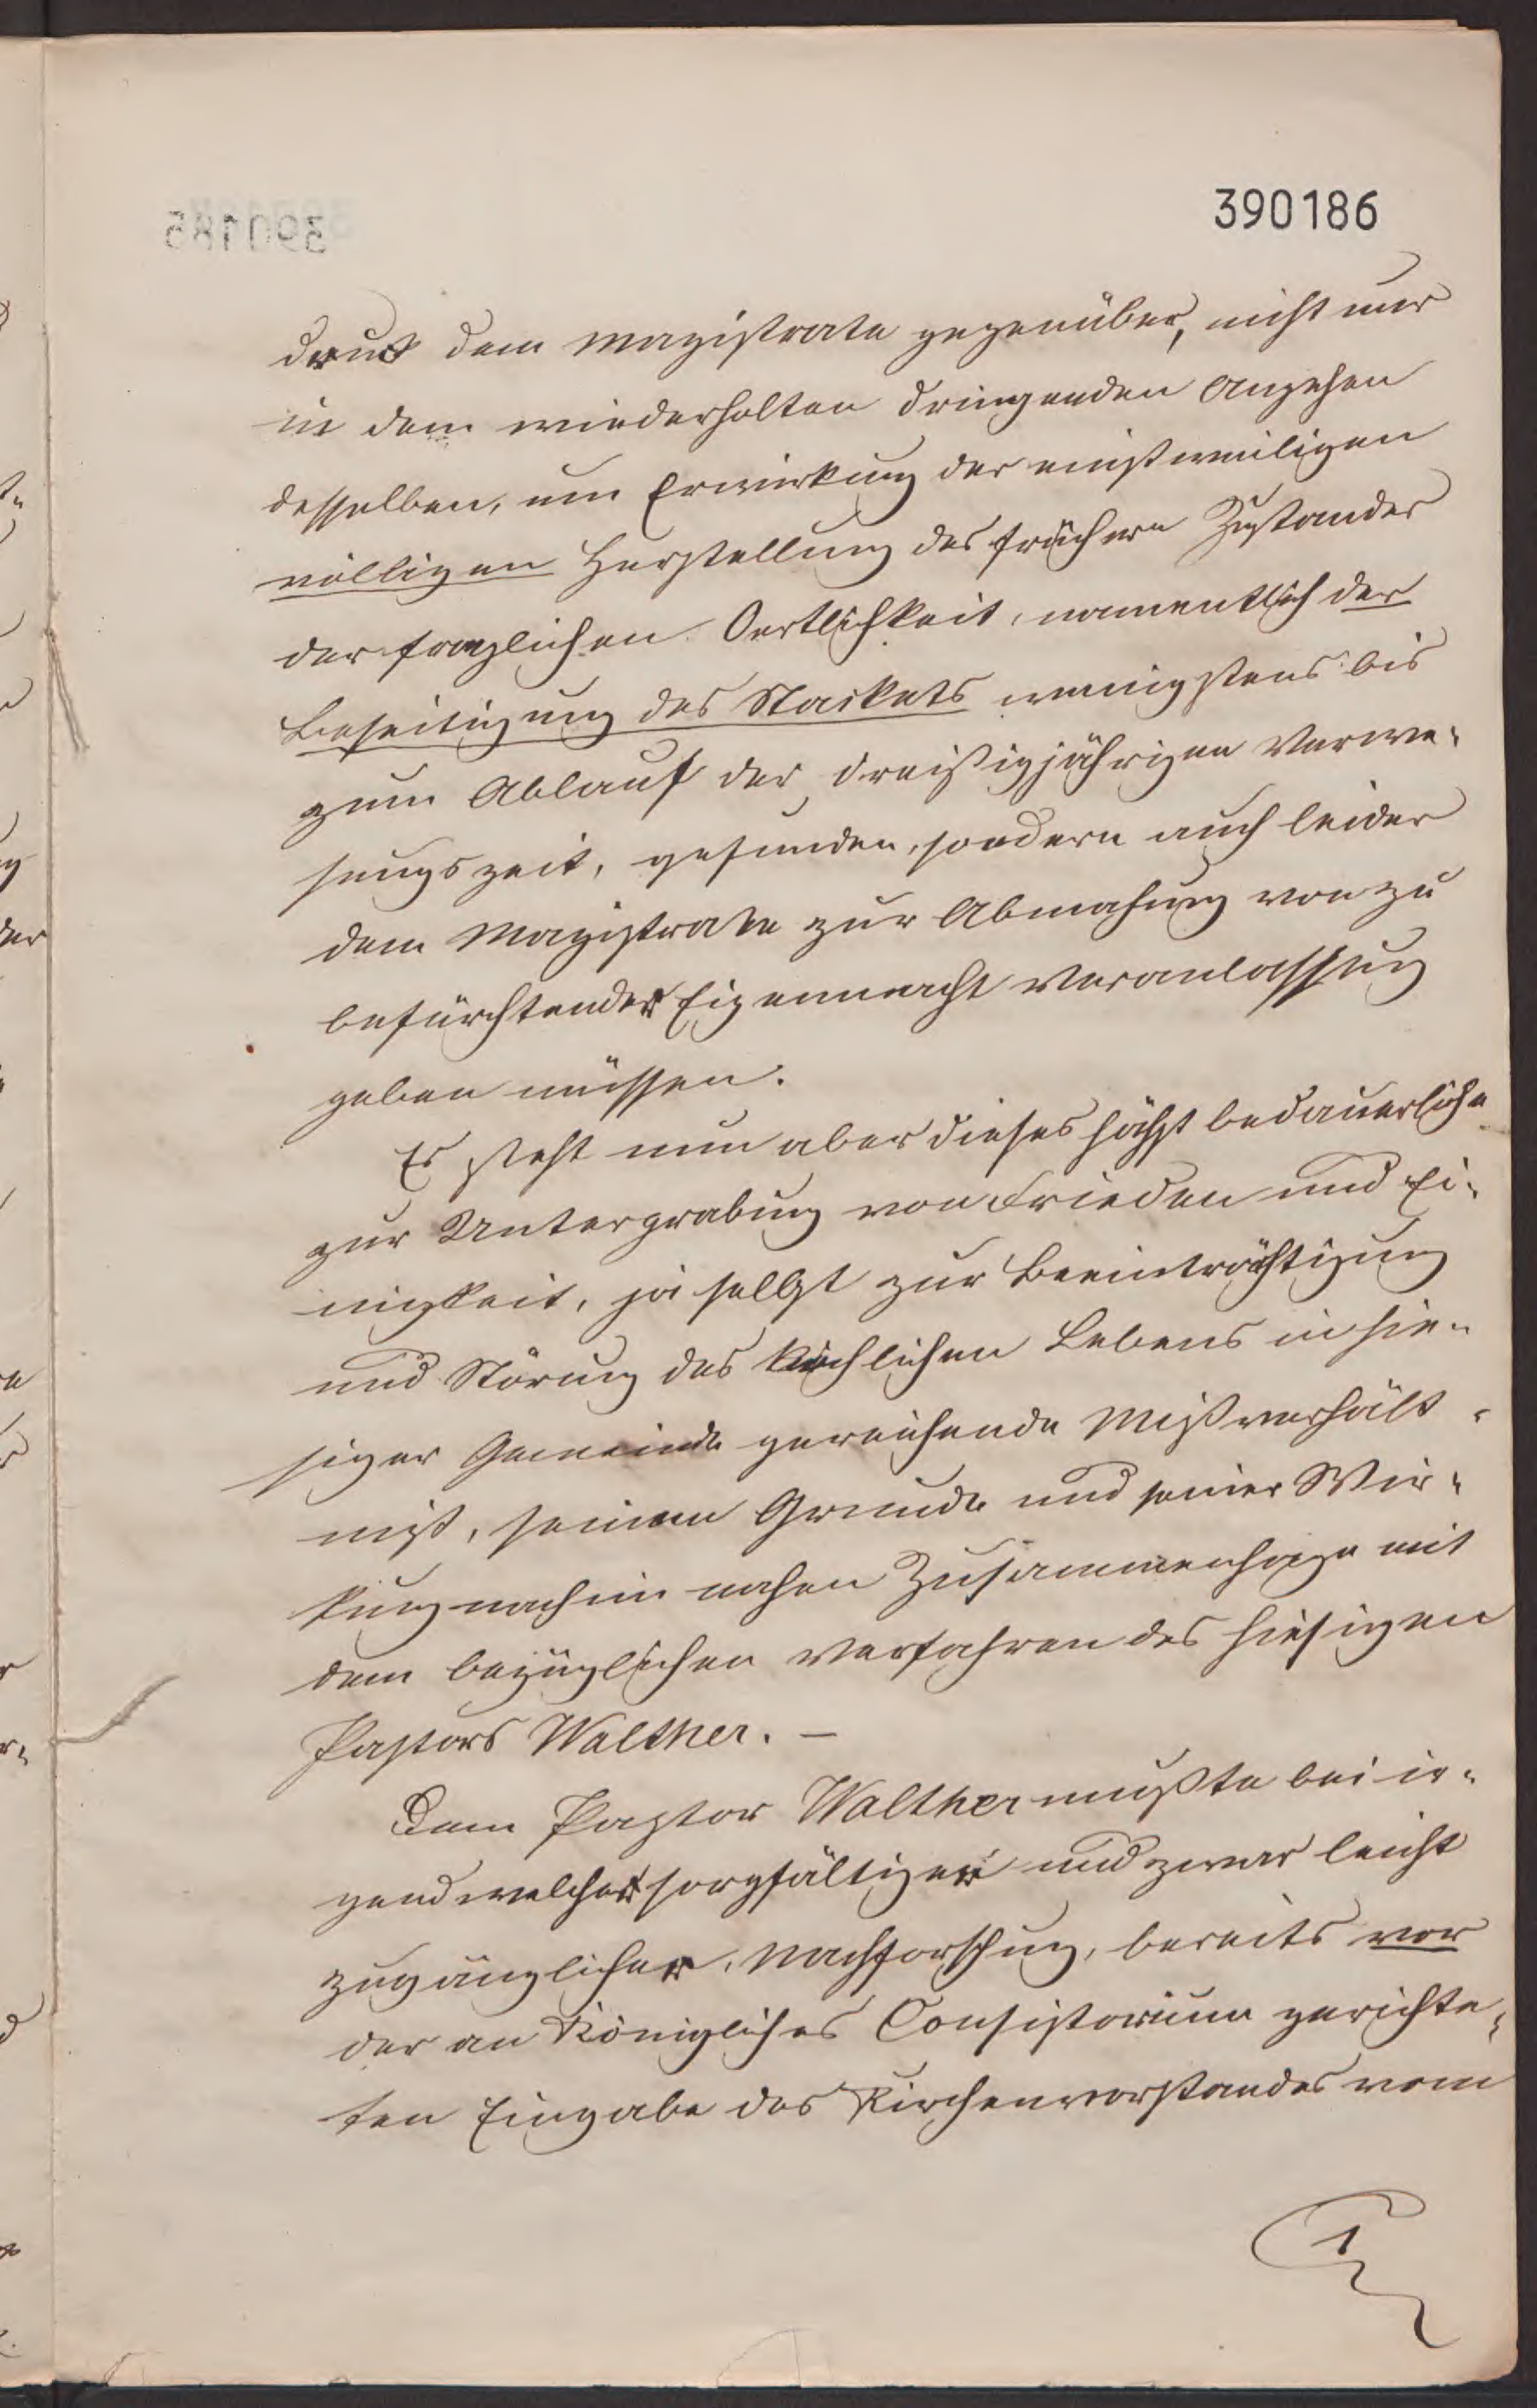 390186
druck dem Magistrate gegenüber, nicht nur
in dem wiederholten dringenden Angehen
desselben, um Erwirkung der einstweiligen
völligen Herstellung des früheren Zustandes
der fraglichen Oertlichkeit, namentlich der
Beseitigung des Stackets wenigstens bis
zum Ablauf der dreißigjährigen Verwe-
sungszeit, gefunden, sondern auch leider
dem Magistrate zur Abmahnung von zu
befürchtender Eigenmacht Veranlassung
geben müssen.
Es steht nun aber dieses höchst bedauerliche
zur Untergrabung von Frieden und Ei-
nigkeit, ja selbst zur Beeinträchtigung
und Störung des kirchlichen Lebens in hie-
siger Gemeinde gereichende Mißverhält-
niß, seinem Grunde und seiner Wir-
kung nach in nahem Zusammenhange mit
dem bezüglichen Verfahren des hiesigen
Pastors Walther. –
Dem Pastor Walther mußte bei ir-
gend welcher sorgfältigen und zwar leicht
zugänglicher, Nachforschung, bereits vor
der an Königliches Consistorium gerichte-
ten Eingabe des Kirchenvorstandes vom